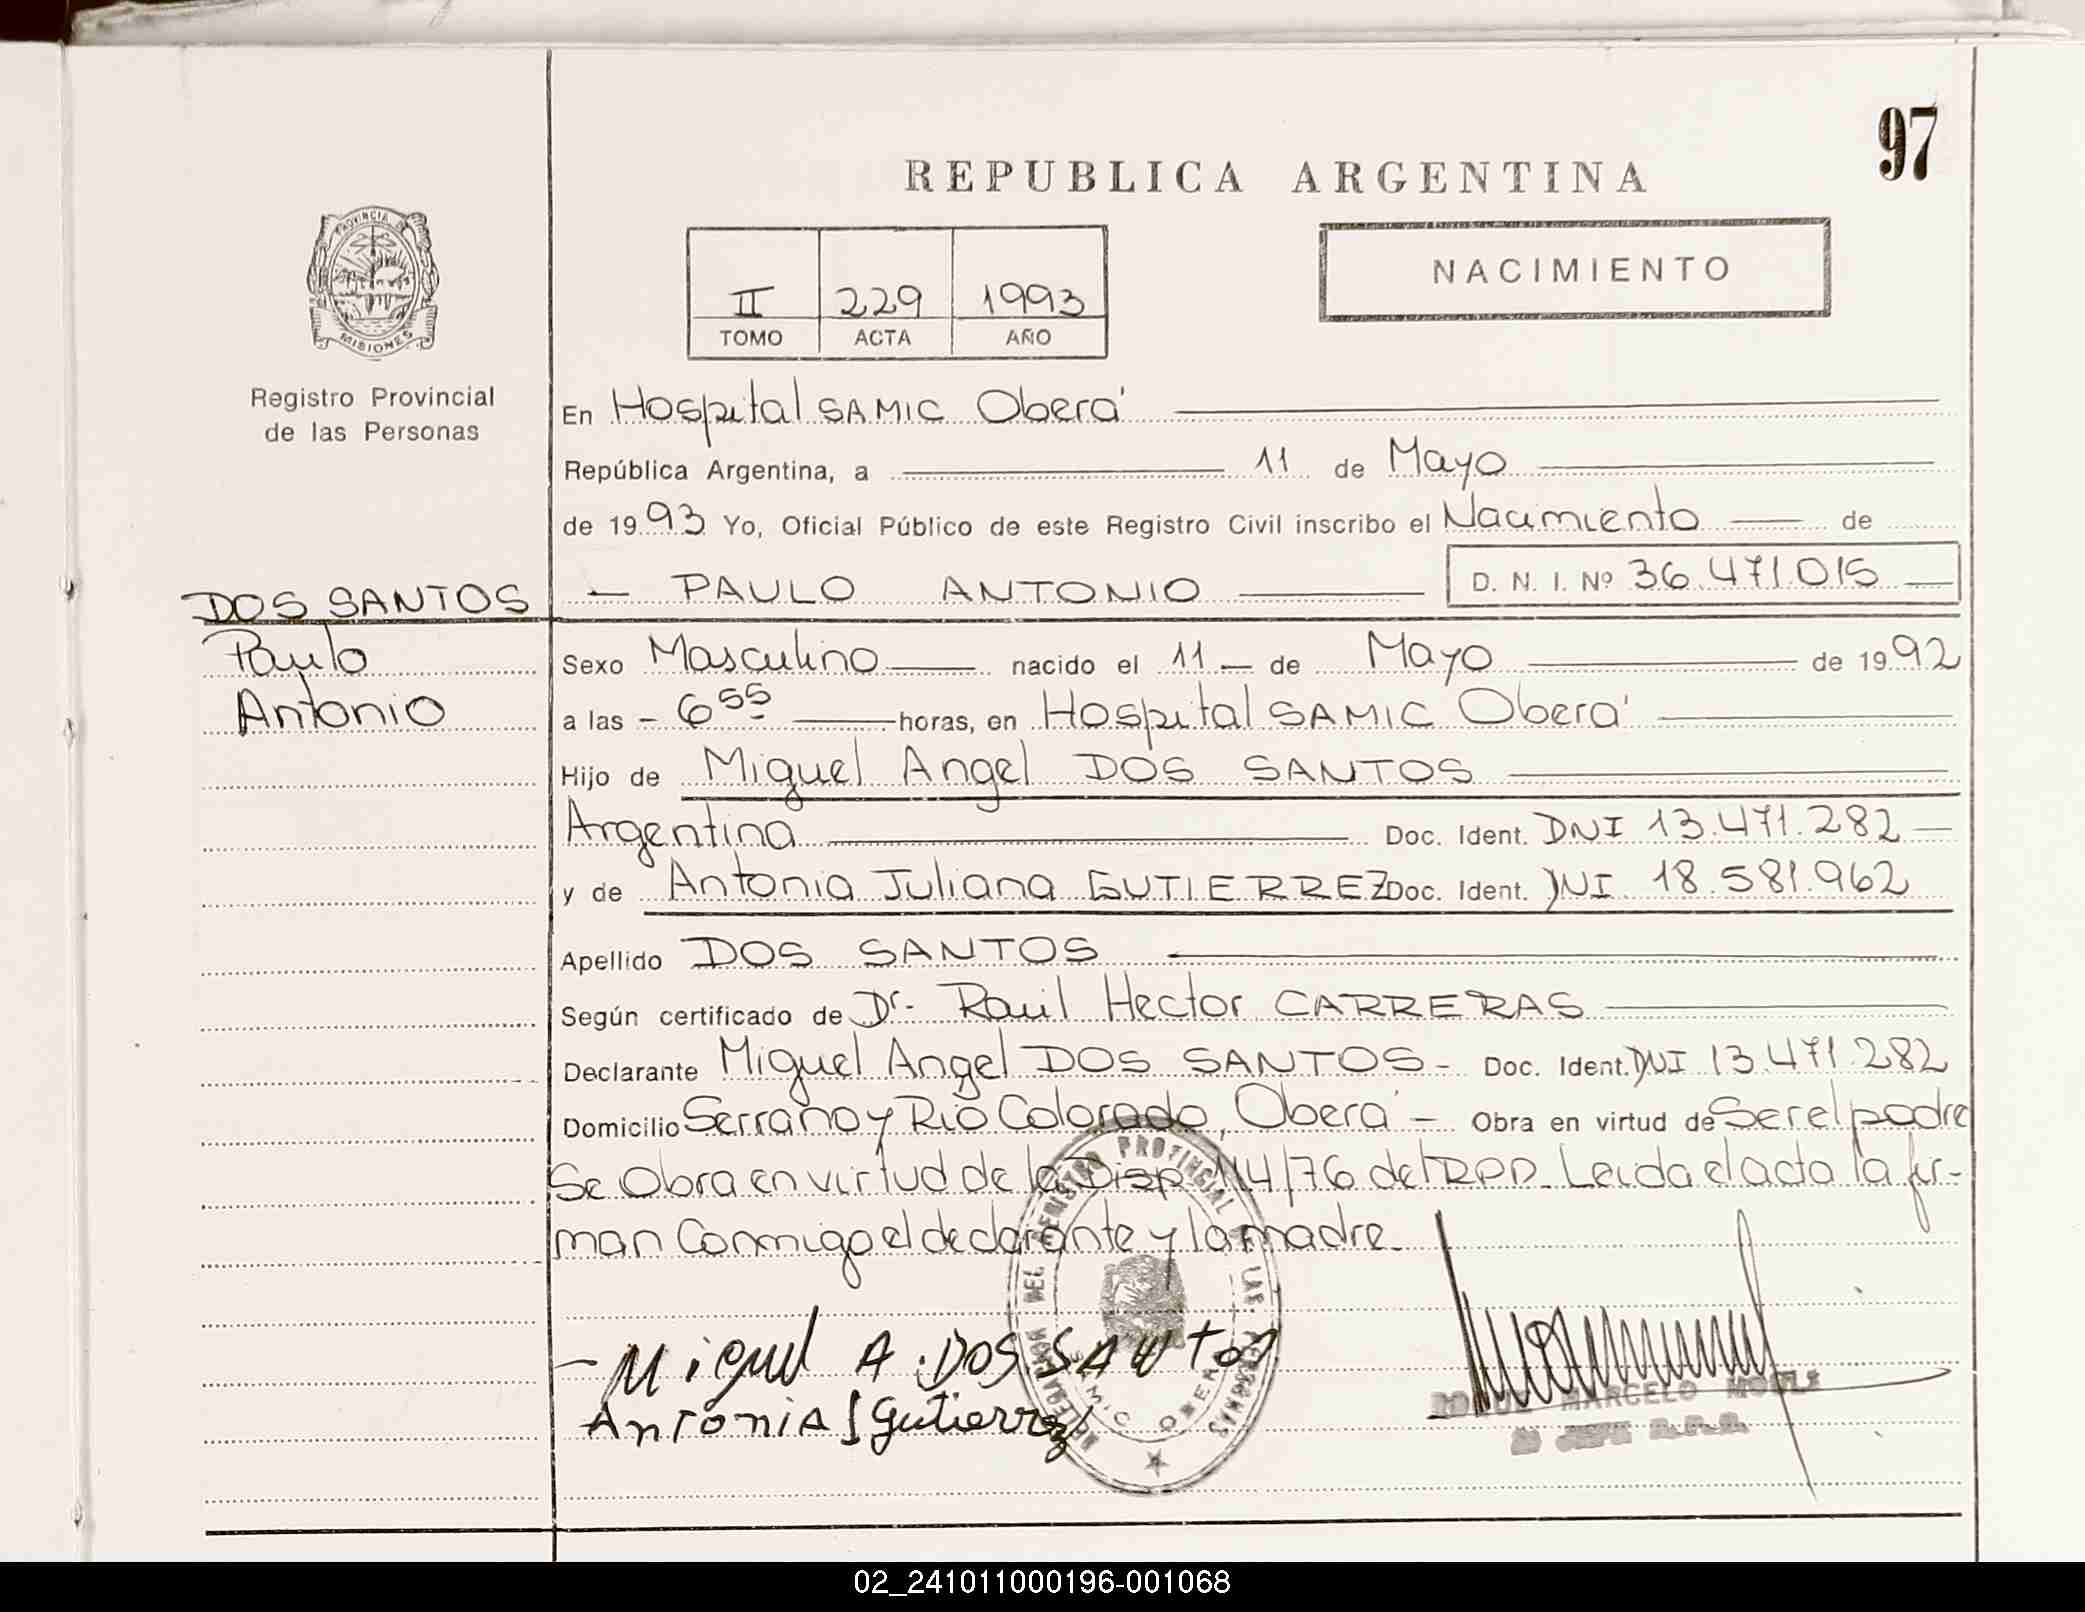 97
REPUBLICA ARGENTINA
PROVINCIA DE
MISIONES
NACIMIENTO
II 229 1993
TOMO ACTA AÑO
Registro Provincial
de las Personas
En Hospital SAMIC Oberá
República Argentina, a 11 de Mayo
de 1993 Yo, Oficial Público de este Registro Civil inscribo el Nacimiento de
PAULO ANTONIO D. N. I. Nº 36.471.015
DOS SANTOS
Paulo
Antonio
Sexo Masculino nacido el 11 de Mayo de 1992
a las 6 55 horas, en Hospital SAMIC Oberá
Hijo de Miguel Angel DOS SANTOS
Argentina Doc. Ident. DNI 13.471.282
y de Antonia Juliana GUTIERREZ Doc. Ident. DNI 18.581.962
Apellido DOS SANTOS
Según certificado de Dr. Raúl Hector CARRERAS
Declarante Miguel Angel DOS SANTOS - Doc. Ident. DNI 13.471.282
Domicilio Serrano y Río Colorado, Oberá - Obra en virtud de Ser el padre
Se Obra en virtud de la Disp 114/76 del RPP. Leida el acta la fir-
man Conmigo el declarante y la madre.
DEL REGISTRO PROVINCIAL DE LAS PERSONAS
SAMIC OBERA
Miguel A. DOS SANTOS
Antonia J Gutierrez
MARCELO
JEFE R.P.P.
02_241011000196-001068